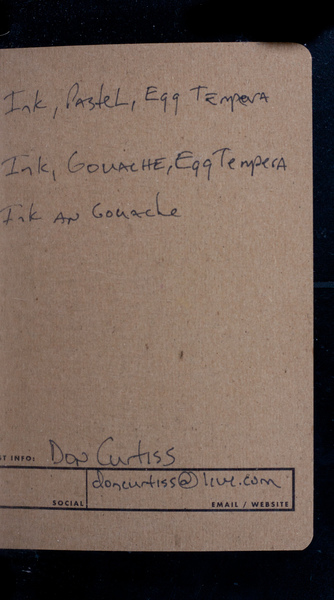 Ink, Pastel, Egg Tempera
Ink, Gouache, Egg Tempera
Ink an Gouache
ST INFO: Don Curtiss
doncurtiss@live.com
SOCIAL
EMAIL / WEBSITE